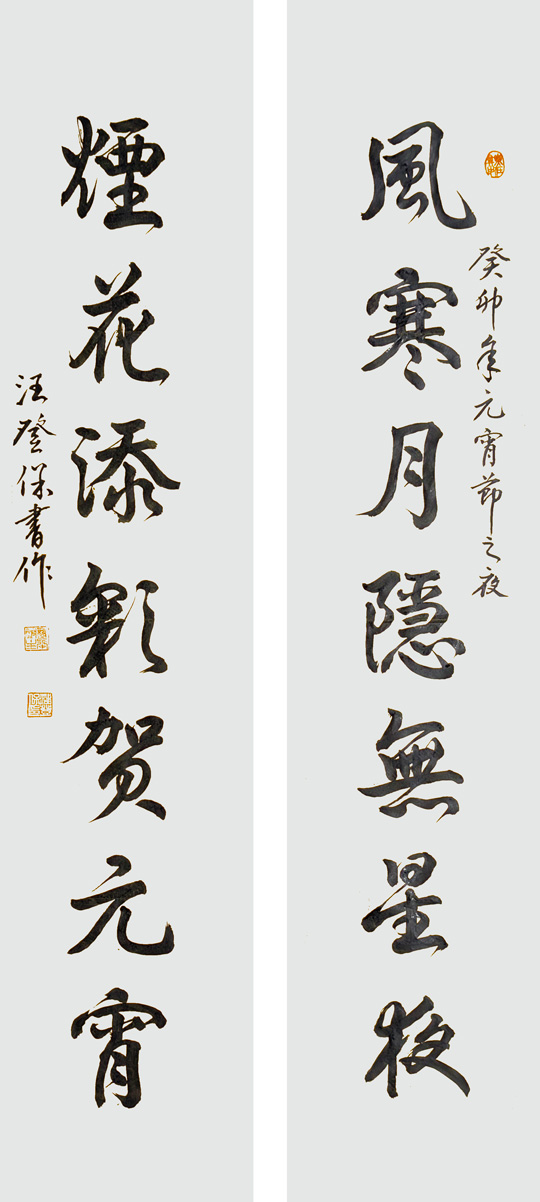 癸卯年元宵節之夜
風寒月隱無星夜
煙花添彩贺元宵
汪登保書作